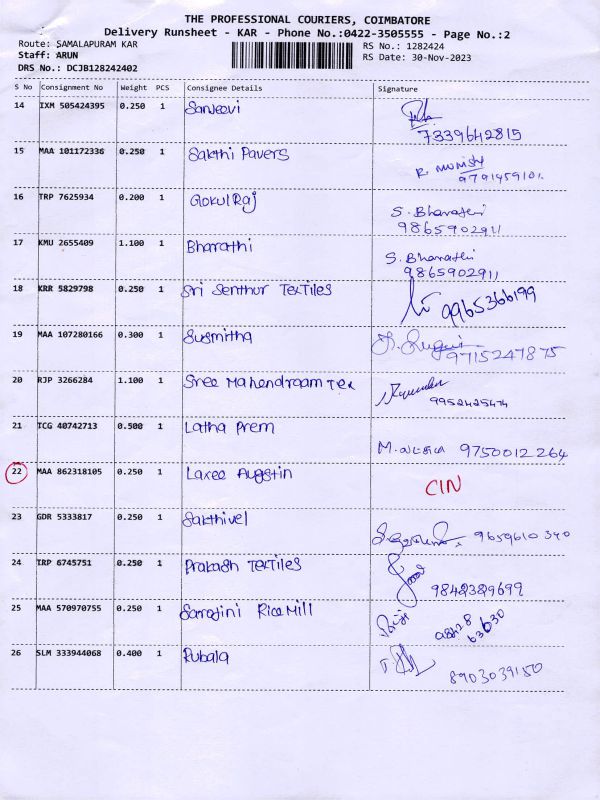 THE PROFESSIONAL COURIERS, COIMBATORE
Delivery Runsheet - KAR - Phone No.:0422-3505555 - Page No.:2
Route: SAMALAPURAM KAR
RS No.: 1282424
Staff: ARUN
RS Date: 30-Nov-2023
DRS No.: DCJB128242402
S No Consignment No Weight PCS Consignee Details Signature
14 IXM 505424395 0.250 1 Sanjeevi
7339642815
15 MAA 101172336 0.250 1 Sakthi Pavers
16 TRP 7625934 0.200 1 GokulRaj
S. Bharathi
9865902911
17 KMU 2655409 1.100 1 Bharathi
S. Bharathi
9865902911
18 KRR 5829798 0.250 1 Sri Senthur Textiles
9965366199
19 MAA 107280166 0.300 1 Susmitha
9715247875
20 RJP 3266284 1.100 1 Sree Mahendraam Tex
9952425474
21 TCG 40742713 0.500 1 Latha Prem
9750012264
22 MAA 862318105 0.250 1 Laxee Augstin
CIN
23 GDR 5333817 0.250 1 Sakthivel
9659610340
24 TRP 6745751 0.250 1 Prakash Textiles
9842329699
25 MAA 570970755 0.250 1 Sarojini Rice Mill
26 SLM 333944068 0.400 1 Rubala
8903039150